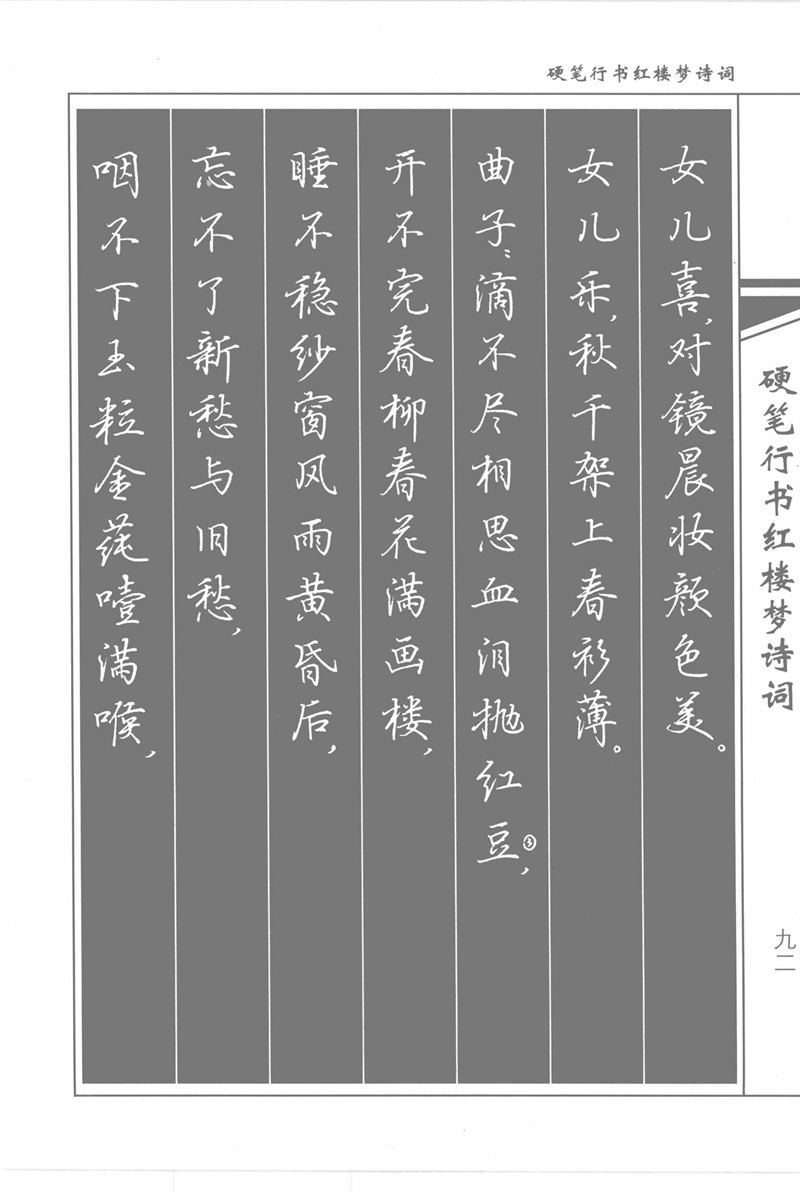 硬笔行书红楼梦诗词
女儿喜,对镜晨妆颜色美。
女儿乐,秋千架上春衫薄。
曲子:滴不尽相思血泪抛红豆③,
开不完春柳春花满画楼,
睡不稳纱窗风雨黄昏后,
忘不了新愁与旧愁,
咽不下玉粒金莼噎满喉,
硬笔行书红楼梦诗词
九二